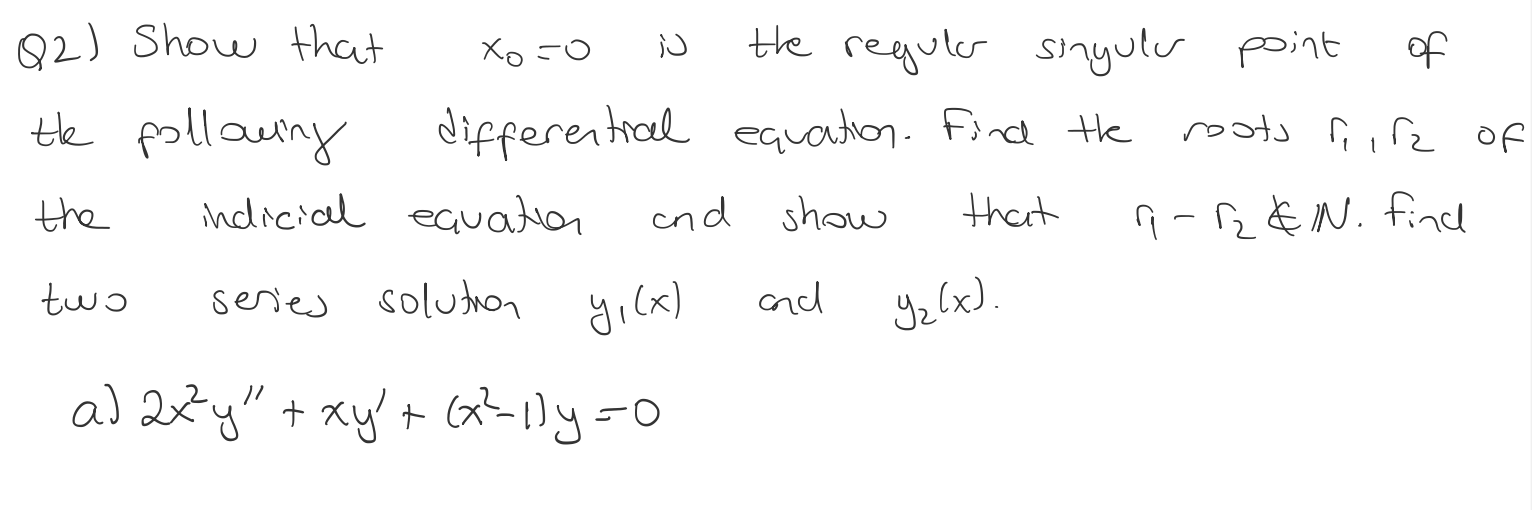 Q2) Show that x₀=0 is the regular singular point of
the following differential equation. Find the roots r₁, r₂ of
the indicial equation and show that r₁ - r₂ ∉ ℕ. Find
two series solution y₁(x) and y₂(x).
a) 2x²y'' + xy' + (x²-1)y = 0